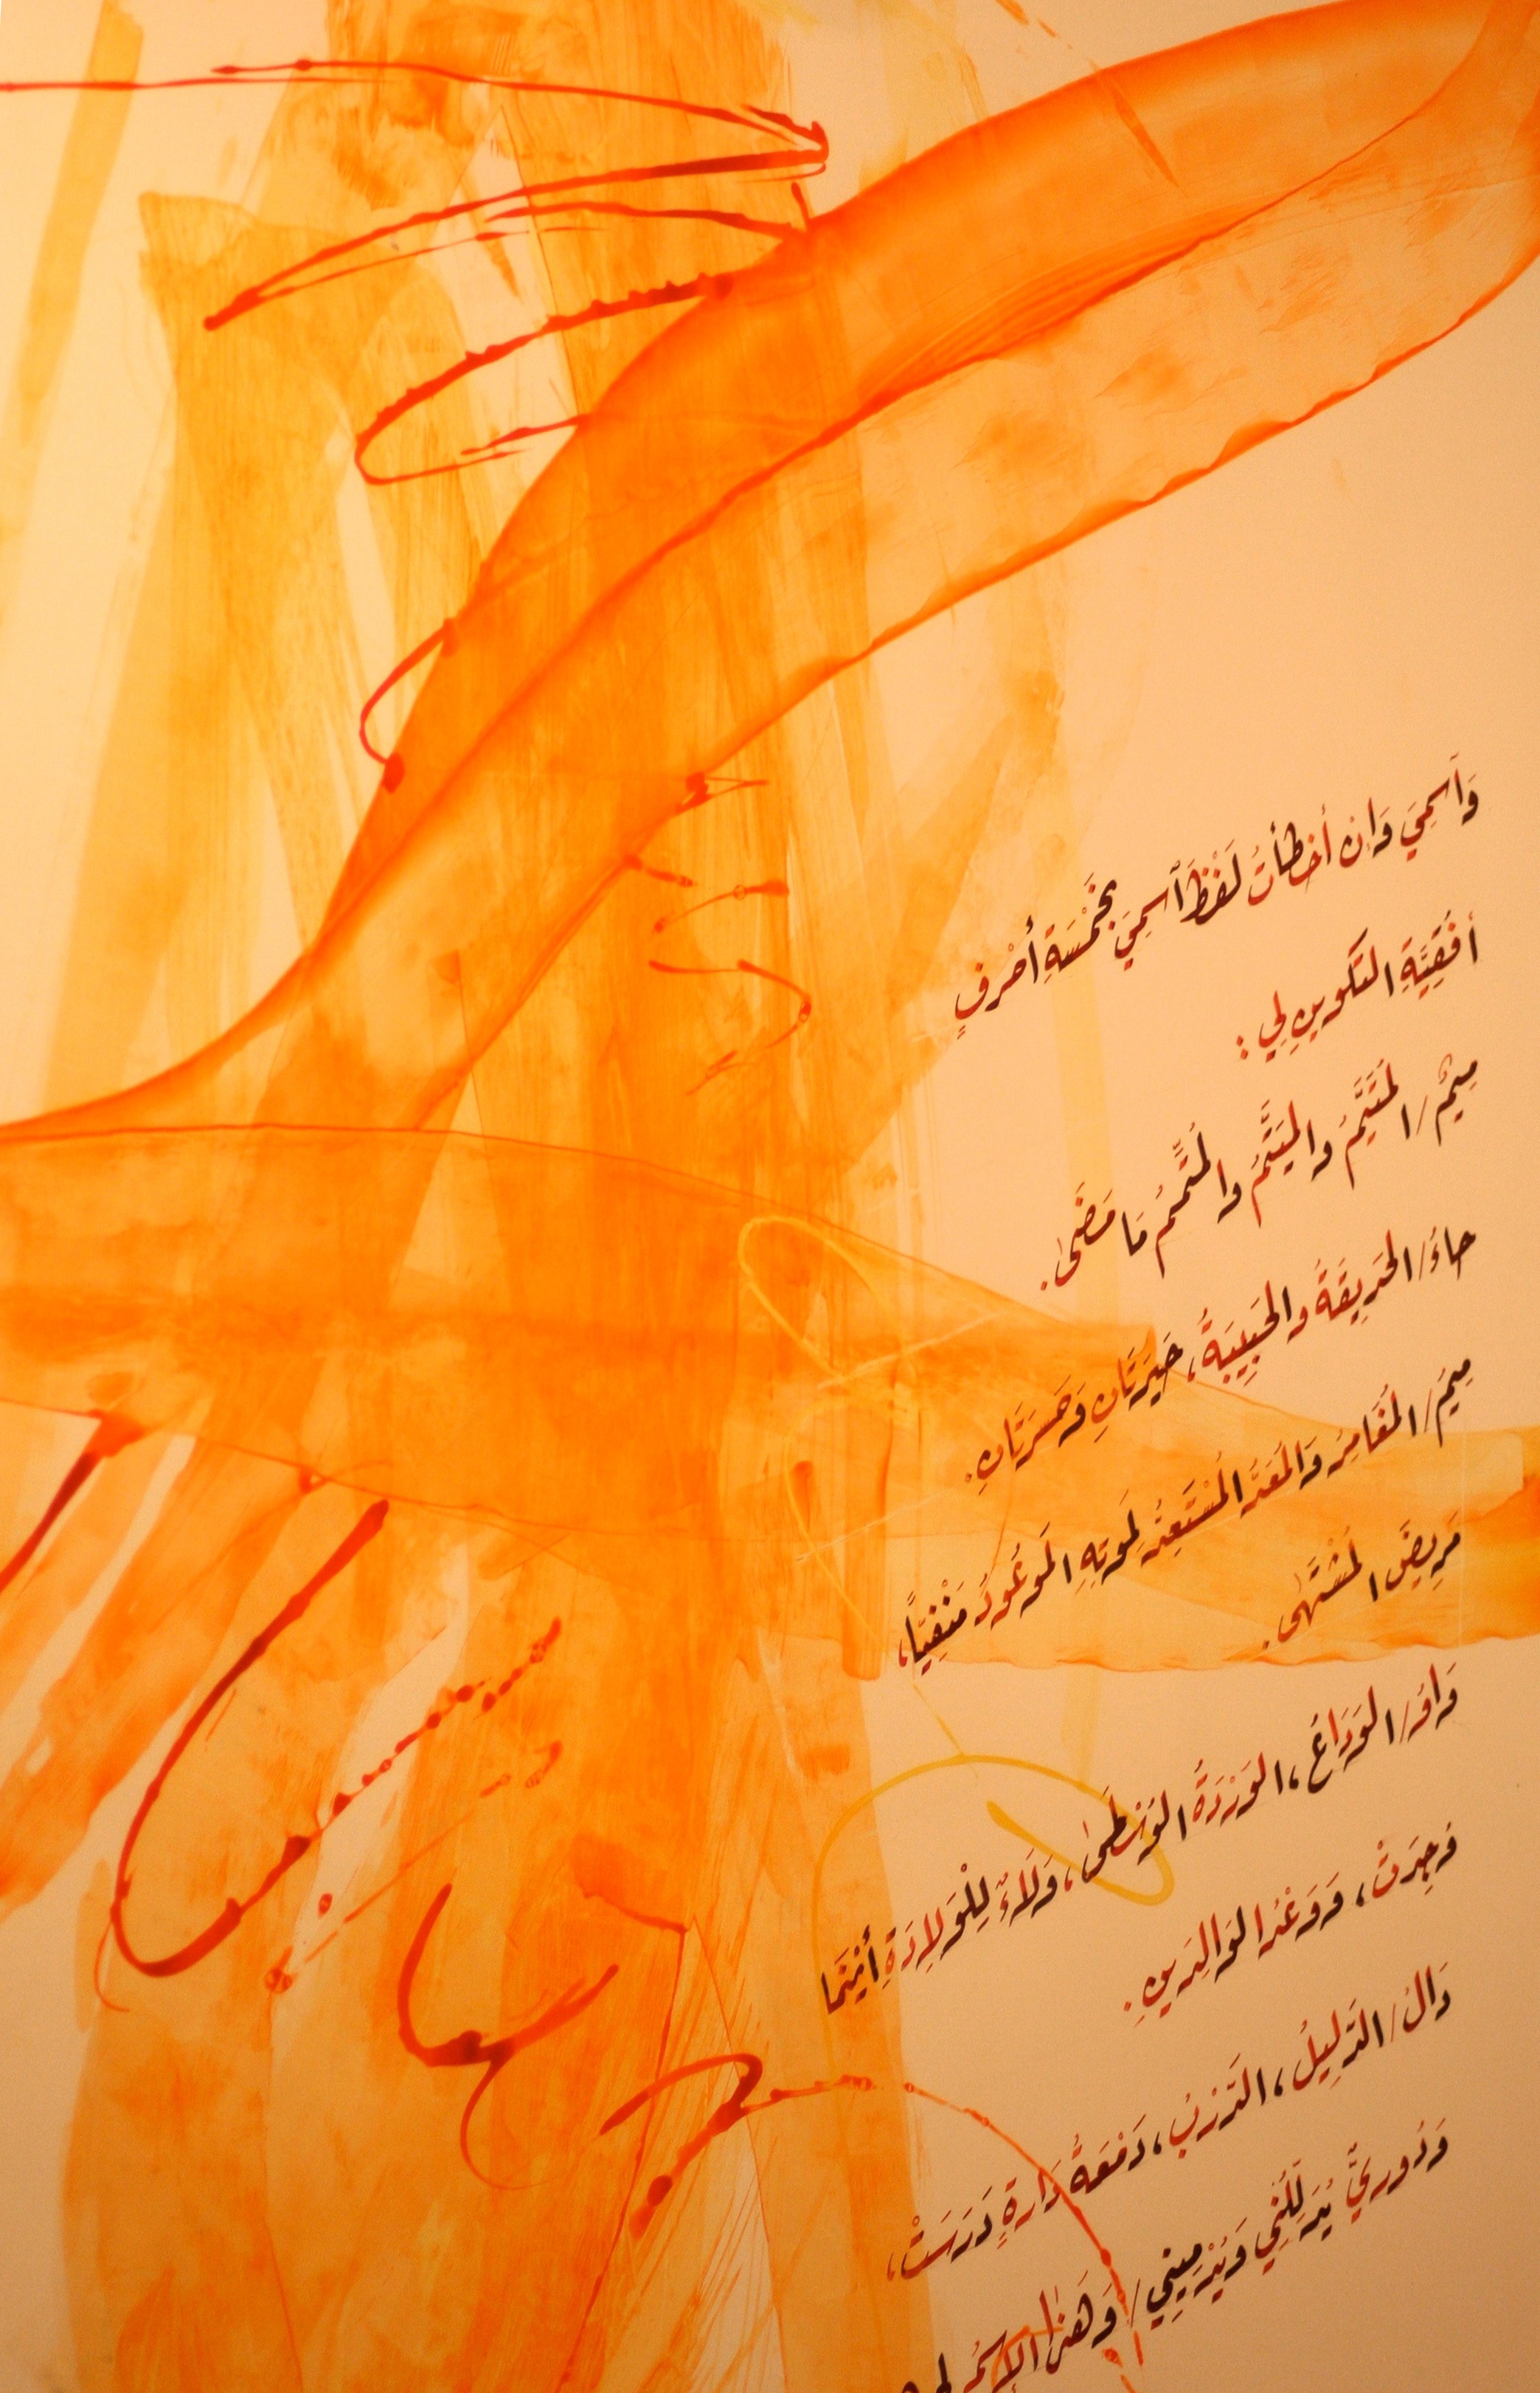 وَاسمِيَ وَإن أخطأتُ لَفْظَ اسمِيَ بخَمْسَةِ أحْرفٍ
أفُقِيَّةِ التكوينِ لِي :
مِيمٌ/المُتَيَّمُ والمُيَتَّمُ والمُتَمِّمُ مَا مَضَى.
حاءُ/الحَدِيقَةُ والحَبِيبَةُ، حَيْرَتَانِ وَحَسْرَتَانِ.
مِيمُ/المُغَامِرُ وَالمُعَدُّ المُسْتَعِدُّ لِمَوتِهِ المَوعُودِ مَنْفِيّاً،
مَرِيضَ المُشْتَهَى.
وَاوُ/الوَدَاعُ، الوَرْدَةُ الوُسْطَى، وَلاءٌ لِلْوِلادَةِ أيْنَمَا
وُجِدَتْ، وَوَعْدُ الوَالِدَينِ.
دَالُ/الدَّلِيلُ، الدَّرْبُ، دَمْعَةُ دَارةٍ دَرَسَتْ،
وَدُورِيٌّ يُدَلِّلُنِي وَيُدْمِينِي/وَهَذا الاسمُ لِي